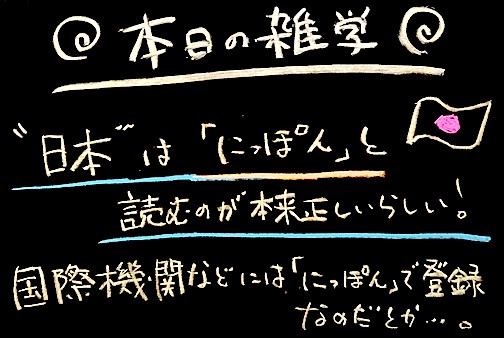 本日の雑学
"日本"は「にっぽん」と
読むのが本来正しいらしい!
国際機関などには「にっぽん」で登録
なのだとか…。